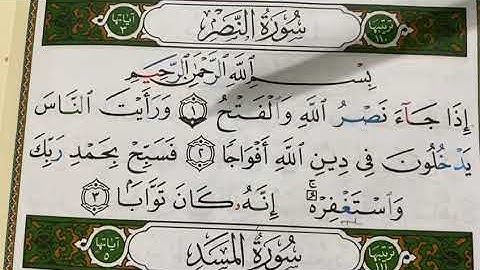 آياتها ٣ سُورَةُ النَّصْرِ ترتيبها
بِسْمِ اللَّهِ الرَّحْمَٰنِ الرَّحِيمِ
إِذَا جَآءَ نَصْرُ اللَّهِ وَالْفَتْحُ ١ وَرَأَيْتَ النَّاسَ
يَدْخُلُونَ فِي دِينِ اللَّهِ أَفْوَاجًا ٢ فَسَبِّحْ بِحَمْدِ رَبِّكَ
وَاسْتَغْفِرْهُ ۚ إِنَّهُ كَانَ تَوَّابًا ٣
ترتيبها ١١١ سُورَةُ الْمَسَدِ آياتها ٥